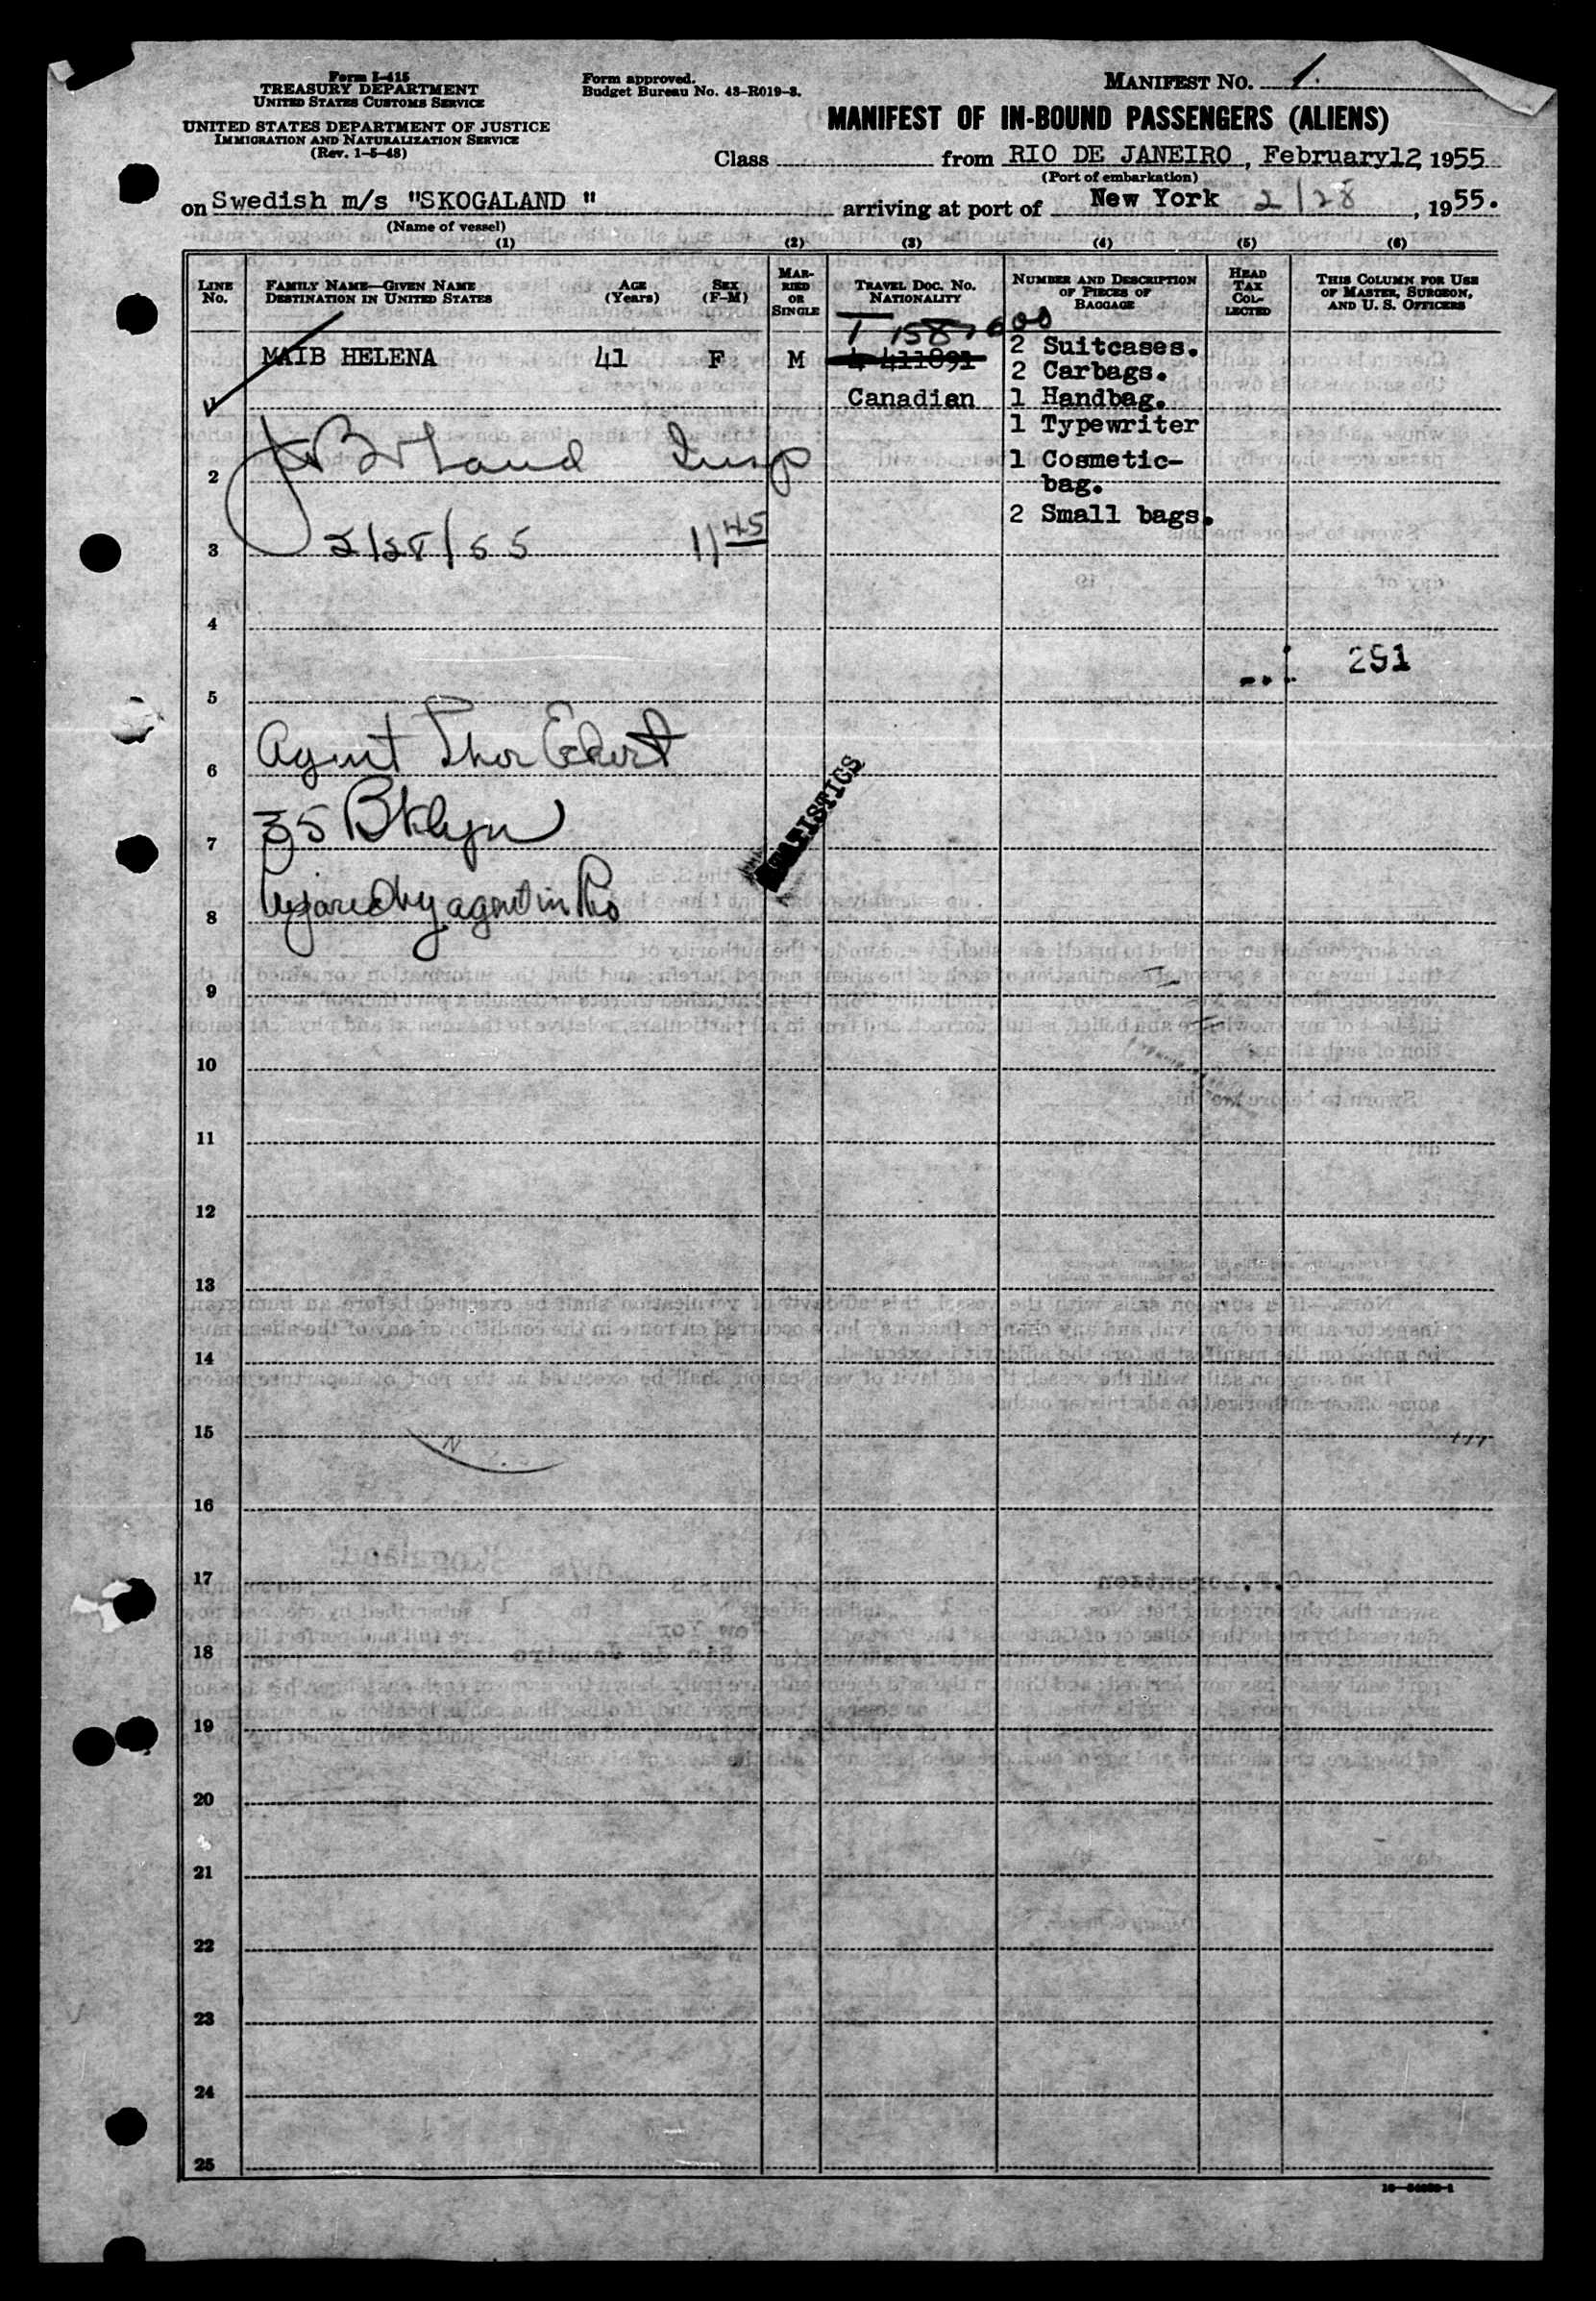 Form I-415
TREASURY DEPARTMENT
UNITED STATES CUSTOMS SERVICE
UNITED STATES DEPARTMENT OF JUSTICE
IMMIGRATION AND NATURALIZATION SERVICE
(Rev. 1-5-48)
Form approved.
Budget Bureau No. 43-R019-3.
MANIFEST NO. 1.
MANIFEST OF IN-BOUND PASSENGERS (ALIENS)
Class from RIO DE JANEIRO, February12, 1955
(Port of embarkation)
on Swedish m/s "SKOGALAND " arriving at port of New York 2/28, 1955.
(Name of vessel)
(1) (2) (3) (4) (5) (6)
LINE NO. FAMILY NAME—GIVEN NAME DESTINATION IN UNITED STATES AGE (Years) SEX (F-M) MARRIED OR SINGLE TRAVEL DOC. NO. NATIONALITY NUMBER AND DESCRIPTION OF PIECES OF BAGGAGE HEAD TAX COLLECTED THIS COLUMN FOR USE OF MASTER, SURGEON, AND U. S. OFFICERS
MAIB HELENA 41 F M 4-411891 2 Suitcases.
2 Carbags.
1 Canadian 1 Handbag.
1 Typewriter
Insp 1 Cosmetic-
2 bag.
2 Small bags.
3 2/28/55 11 45
4
291
5
Agent Thor Eckert
6
35 Bklyn
7
STATISTICS
Prepared by agent in Rio
8
9
10
11
12
13
14
15
16
17
18
19
20
21
22
23
24
25